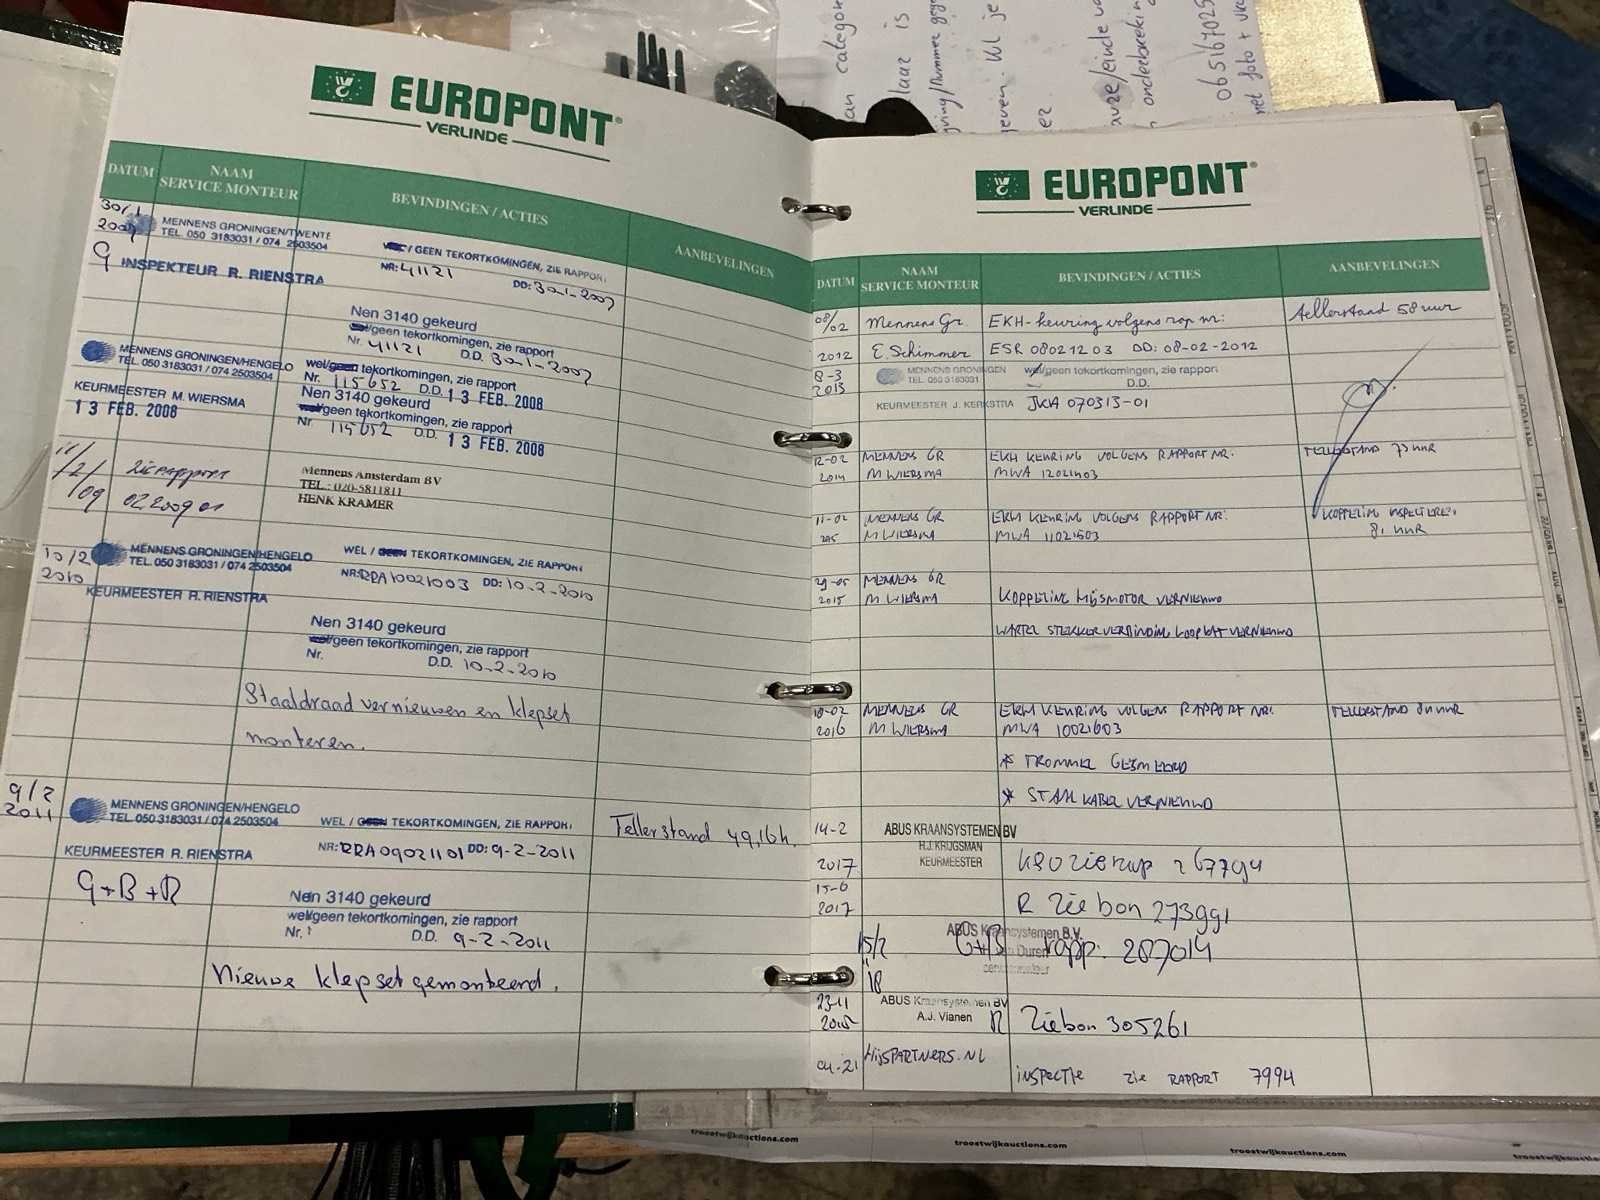 EUROPONT
VERLINDE
DATUM NAAM SERVICE MONTEUR BEVINDINGEN / ACTIES AANBEVELINGEN
30/1
MENNENS GRONINGEN/TWENTE
TEL. 050 3183031 / 074 2503504
/ GEEN TEKORTKOMINGEN, ZIE RAPPORT
NR: 41121 DD: 30-1-2007
INSPEKTEUR R. RIENSTRA
Nen 3140 gekeurd
/geen tekortkomingen, zie rapport
Nr. 41121 D.D. 30-1-2007
MENNENS GRONINGEN/HENGELO
TEL. 050 3183031 / 074 2503504
KEURMEESTER M. WIERSMA
13 FEB. 2008
wel/geen tekortkomingen, zie rapport
Nr. 115652 D.D. 13 FEB. 2008
Nen 3140 gekeurd
wel/geen tekortkomingen, zie rapport
Nr 115652 D.D. 13 FEB. 2008
11/2/09 zie rapport
02.2009 01
Mennens Amsterdam BV
TEL.: 020-5811811
HENK KRAMER
10/2
2010
MENNENS GRONINGEN/HENGELO
TEL. 050 3183031 / 074 2503504
WEL / GEEN TEKORTKOMINGEN, ZIE RAPPORT
NR: RRA10021003 DD: 10-2-2010
KEURMEESTER R. RIENSTRA
Nen 3140 gekeurd
wel/geen tekortkomingen, zie rapport
Nr. D.D. 10-2-2010
Staaldraad vernieuwen en klepset
monteren.
9/2
2011
MENNENS GRONINGEN/HENGELO
TEL. 050 3183031 / 074 2503504
WEL / GEEN TEKORTKOMINGEN, ZIE RAPPORT
NR: RRA09021101 DD: 9-2-2011
Tellerstand 49,16h.
KEURMEESTER R. RIENSTRA
G+B+R
Nen 3140 gekeurd
wel/geen tekortkomingen, zie rapport
Nr. D.D. 9-2-2011
Nieuwe klepset gemonteerd.
EUROPONT
VERLINDE
DATUM NAAM SERVICE MONTEUR BEVINDINGEN / ACTIES AANBEVELINGEN
08/02 Mennens Gr. EKH-keuring volgens rap nr: Tellerstand 58 uur
2012 E. Schimmer ESR 08021203 DD: 08-02-2012
8-3
2013
MENNENS GRONINGEN
TEL. 050 3183031
wel/geen tekortkomingen, zie rapport
D.D.
KEURMEESTER J. KERKSTRA JKA 070313-01
12-02 MENNENS GR EKH KEURING VOLGENS RAPPORT NR: TELLERSTAND 75 UUR
2014 M WIERSMA MWA 12021403
11-02 MENNENS GR EKH KEURING VOLGENS RAPPORT NR: KOPPELING
M WIERSMA MWA 11021503 81 UUR
29-05 MENNENS GR
2015 M WIERSMA KOPPELING HIJSMOTOR VERNIEUWD
WARTEL STEKKERVERBINDING LOOPKAT VERNIEUWD
10-02 MENNENS GR EKH KEURING VOLGENS RAPPORT NR: TELLERSTAND UUR
2016 M WIERSMA MWA 10021603
* TROMMEL GESMEERD
* STAALKABEL VERNIEUWD
14-2 ABUS KRAANSYSTEMEN BV
H.J. KRIJGSMAN
KEURMEESTER
2017 zie rap 267794
15-6
2017 R zie bon 273991
ABUS Kraansystemen B.V.
15/2 G+B rapp: 287014
'18
23-11 ABUS Kraansystemen BV
A.J. Vianen
R Zie bon 305261
04-21 HIJSPARTNERS.NL
INSPECTIE ZIE RAPPORT 7994
troostwijkauctions.com
troostwijkauctions.com
troostwijkauctions.com